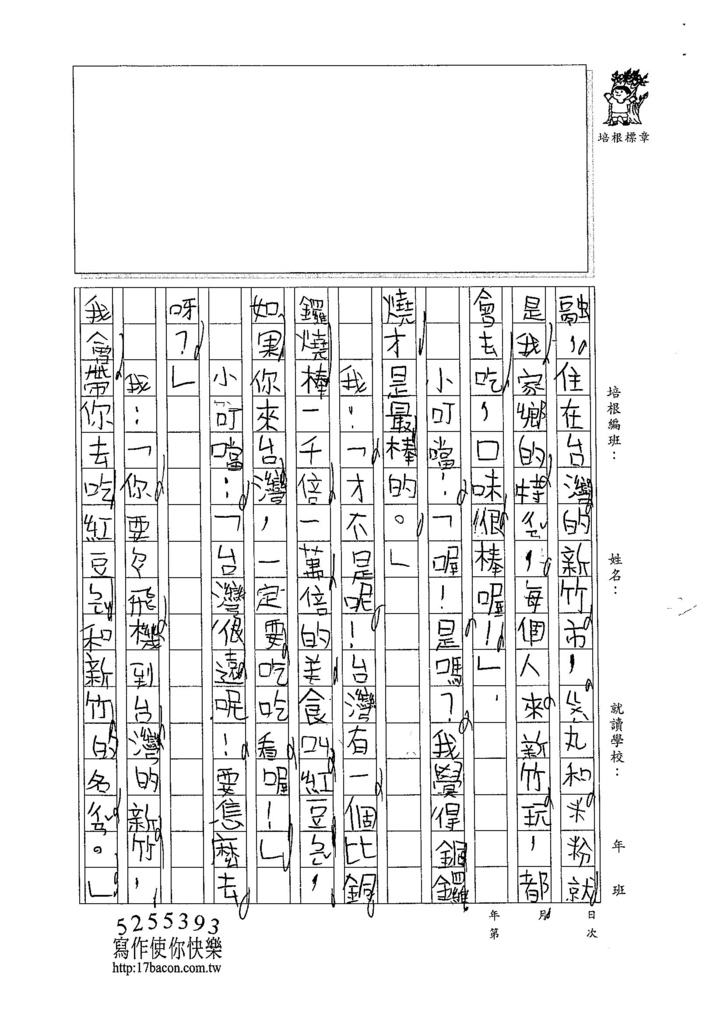 培根標章
培根編班：
姓名：
就讀學校：
年
班
年
月
日
第
次
融，住在台灣的新竹市，貢丸和米粉就
是我家鄉的特色，每個人來新竹玩，都
會去吃，口味很棒喔！」
小叮噹：「喔！是嗎？我覺得銅鑼
燒才是最棒的。」
我：「才不是呢！台灣有一個比銅
鑼燒棒一千倍一萬倍的美食叫紅豆
如果你來台灣，一定要吃吃看喔！」
小叮噹：「台灣很遠呢！要怎麼去
呀？」
我：「你要坐飛機到台灣的新竹，
我會帶你去吃紅豆
和新竹的名
。」
5255393
寫作使你快樂
http:17bacon.com.tw